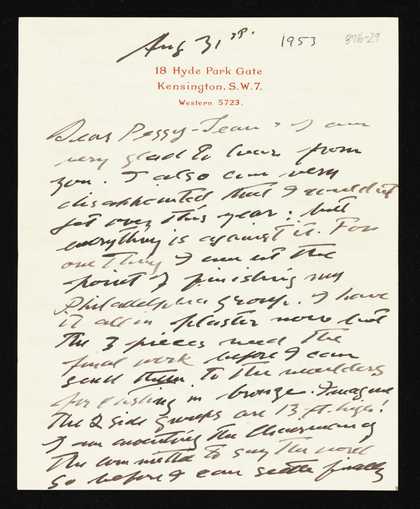 Aug 31st. 1953 876-29
18 Hyde Park Gate
Kensington. S.W.7.
Western 5723.
Dear Peggy-Jean. I am
very glad to hear from
you. I also am very
disappointed that I couldn't
get over this year: but
everything is against it. For
one thing I am at the
point of finishing my
Philadelphia group. I have
it all in plaster now but
the 3 pieces need the
final work before I can
send them to the moulders
for casting in bronze. Imagine
the 2 side groups are 13 ft. high!
I am awaiting the Chairman of
the committee to say the word
so before I can settle finally